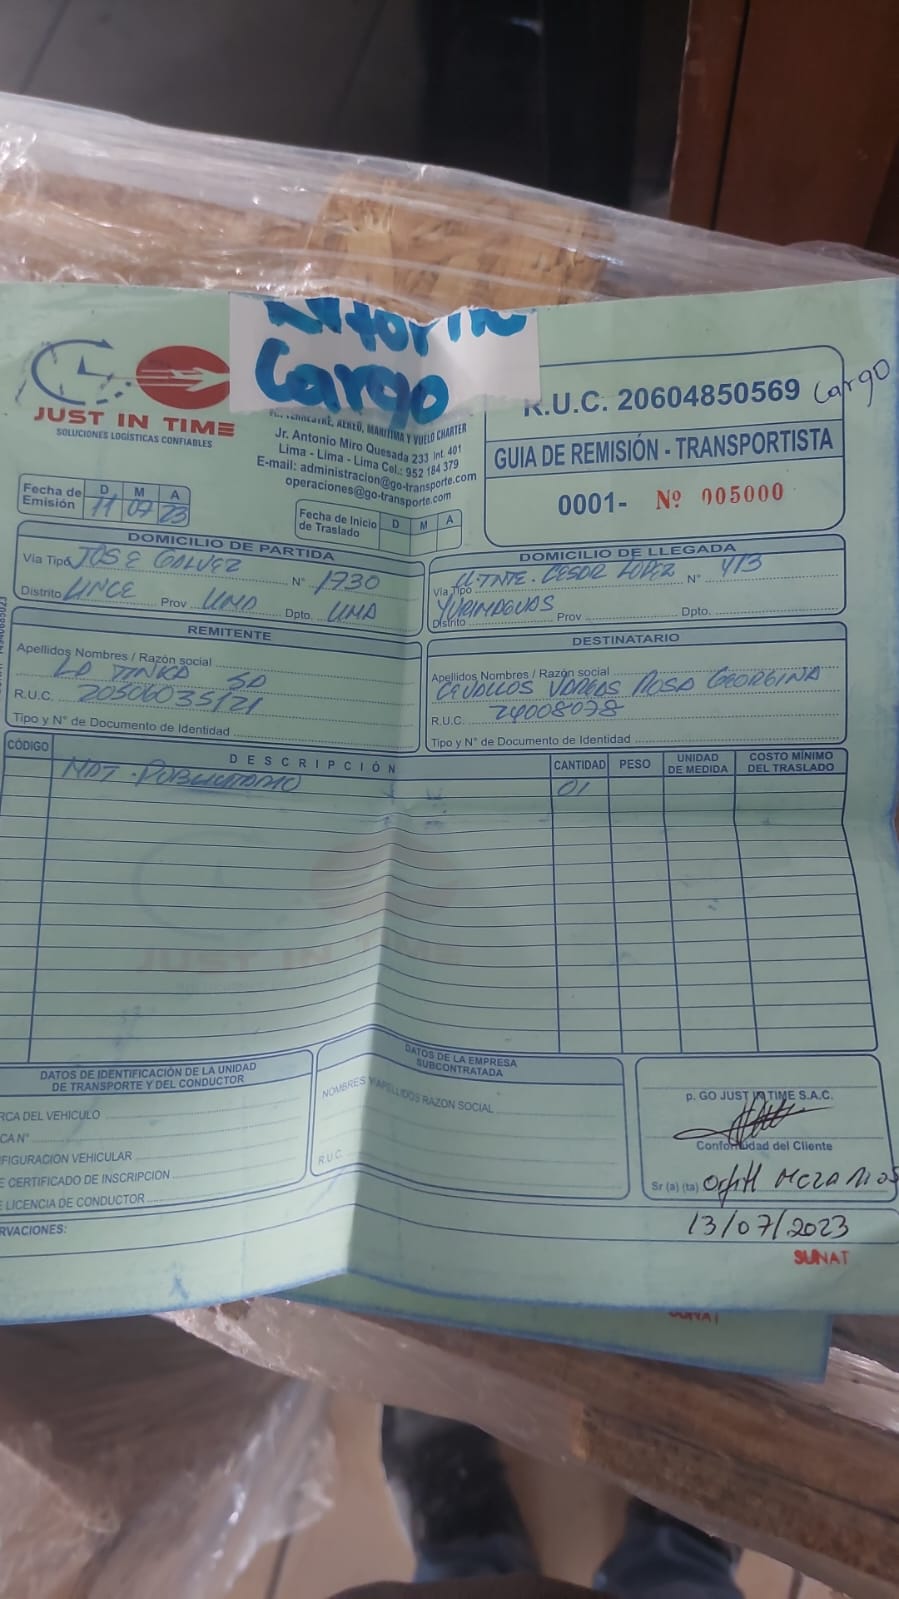 Cargo
JUST IN TIME
SOLUCIONES LOGÍSTICAS CONFIABLES
TERRESTRE, AEREO, MARITIMA Y VUELO CHARTER
Jr. Antonio Miro Quesada 233 Int. 401
Lima - Lima - Lima Cel.: 952 184 379
E-mail: administracion@go-transporte.com
operaciones@go-transporte.com
R.U.C. 20604850569
Cargo
GUIA DE REMISIÓN - TRANSPORTISTA
0001- Nº 005000
Fecha de Emisión D M A
11 07 23
Fecha de Inicio de Traslado D M A
DOMICILIO DE PARTIDA
Vía Tipo JOSE GALVEZ Nº 1730
Distrito LINCE Prov LIMA Dpto. LIMA
DOMICILIO DE LLEGADA
Vía Tipo CL TNTE. CESAR LOPEZ Nº 413
Distrito YURIMAGUAS Prov Dpto.
REMITENTE
Apellidos Nombres / Razón social
LA TINKA SA
R.U.C. 20506035121
Tipo y N° de Documento de Identidad
DESTINATARIO
Apellidos Nombres / Razón social
CEVALLOS VARGAS ROSA GEORGINA
R.U.C. 24008078
Tipo y N° de Documento de Identidad
CÓDIGO DESCRIPCIÓN CANTIDAD PESO UNIDAD DE MEDIDA COSTO MÍNIMO DEL TRASLADO
MAT. PUBLICITARIO 01
JUST IN TIME
DATOS DE IDENTIFICACIÓN DE LA UNIDAD
DE TRANSPORTE Y DEL CONDUCTOR
RCA DEL VEHICULO
CA N°
FIGURACIÓN VEHICULAR
E CERTIFICADO DE INSCRIPCION
E LICENCIA DE CONDUCTOR
RVACIONES:
DATOS DE LA EMPRESA
SUBCONTRATADA
NOMBRES Y APELLIDOS RAZON SOCIAL
R.U.C.
p. GO JUST IN TIME S.A.C.
Conformidad del Cliente
Sr (a) (ta)
13/07/2023
SUNAT
SUNAT